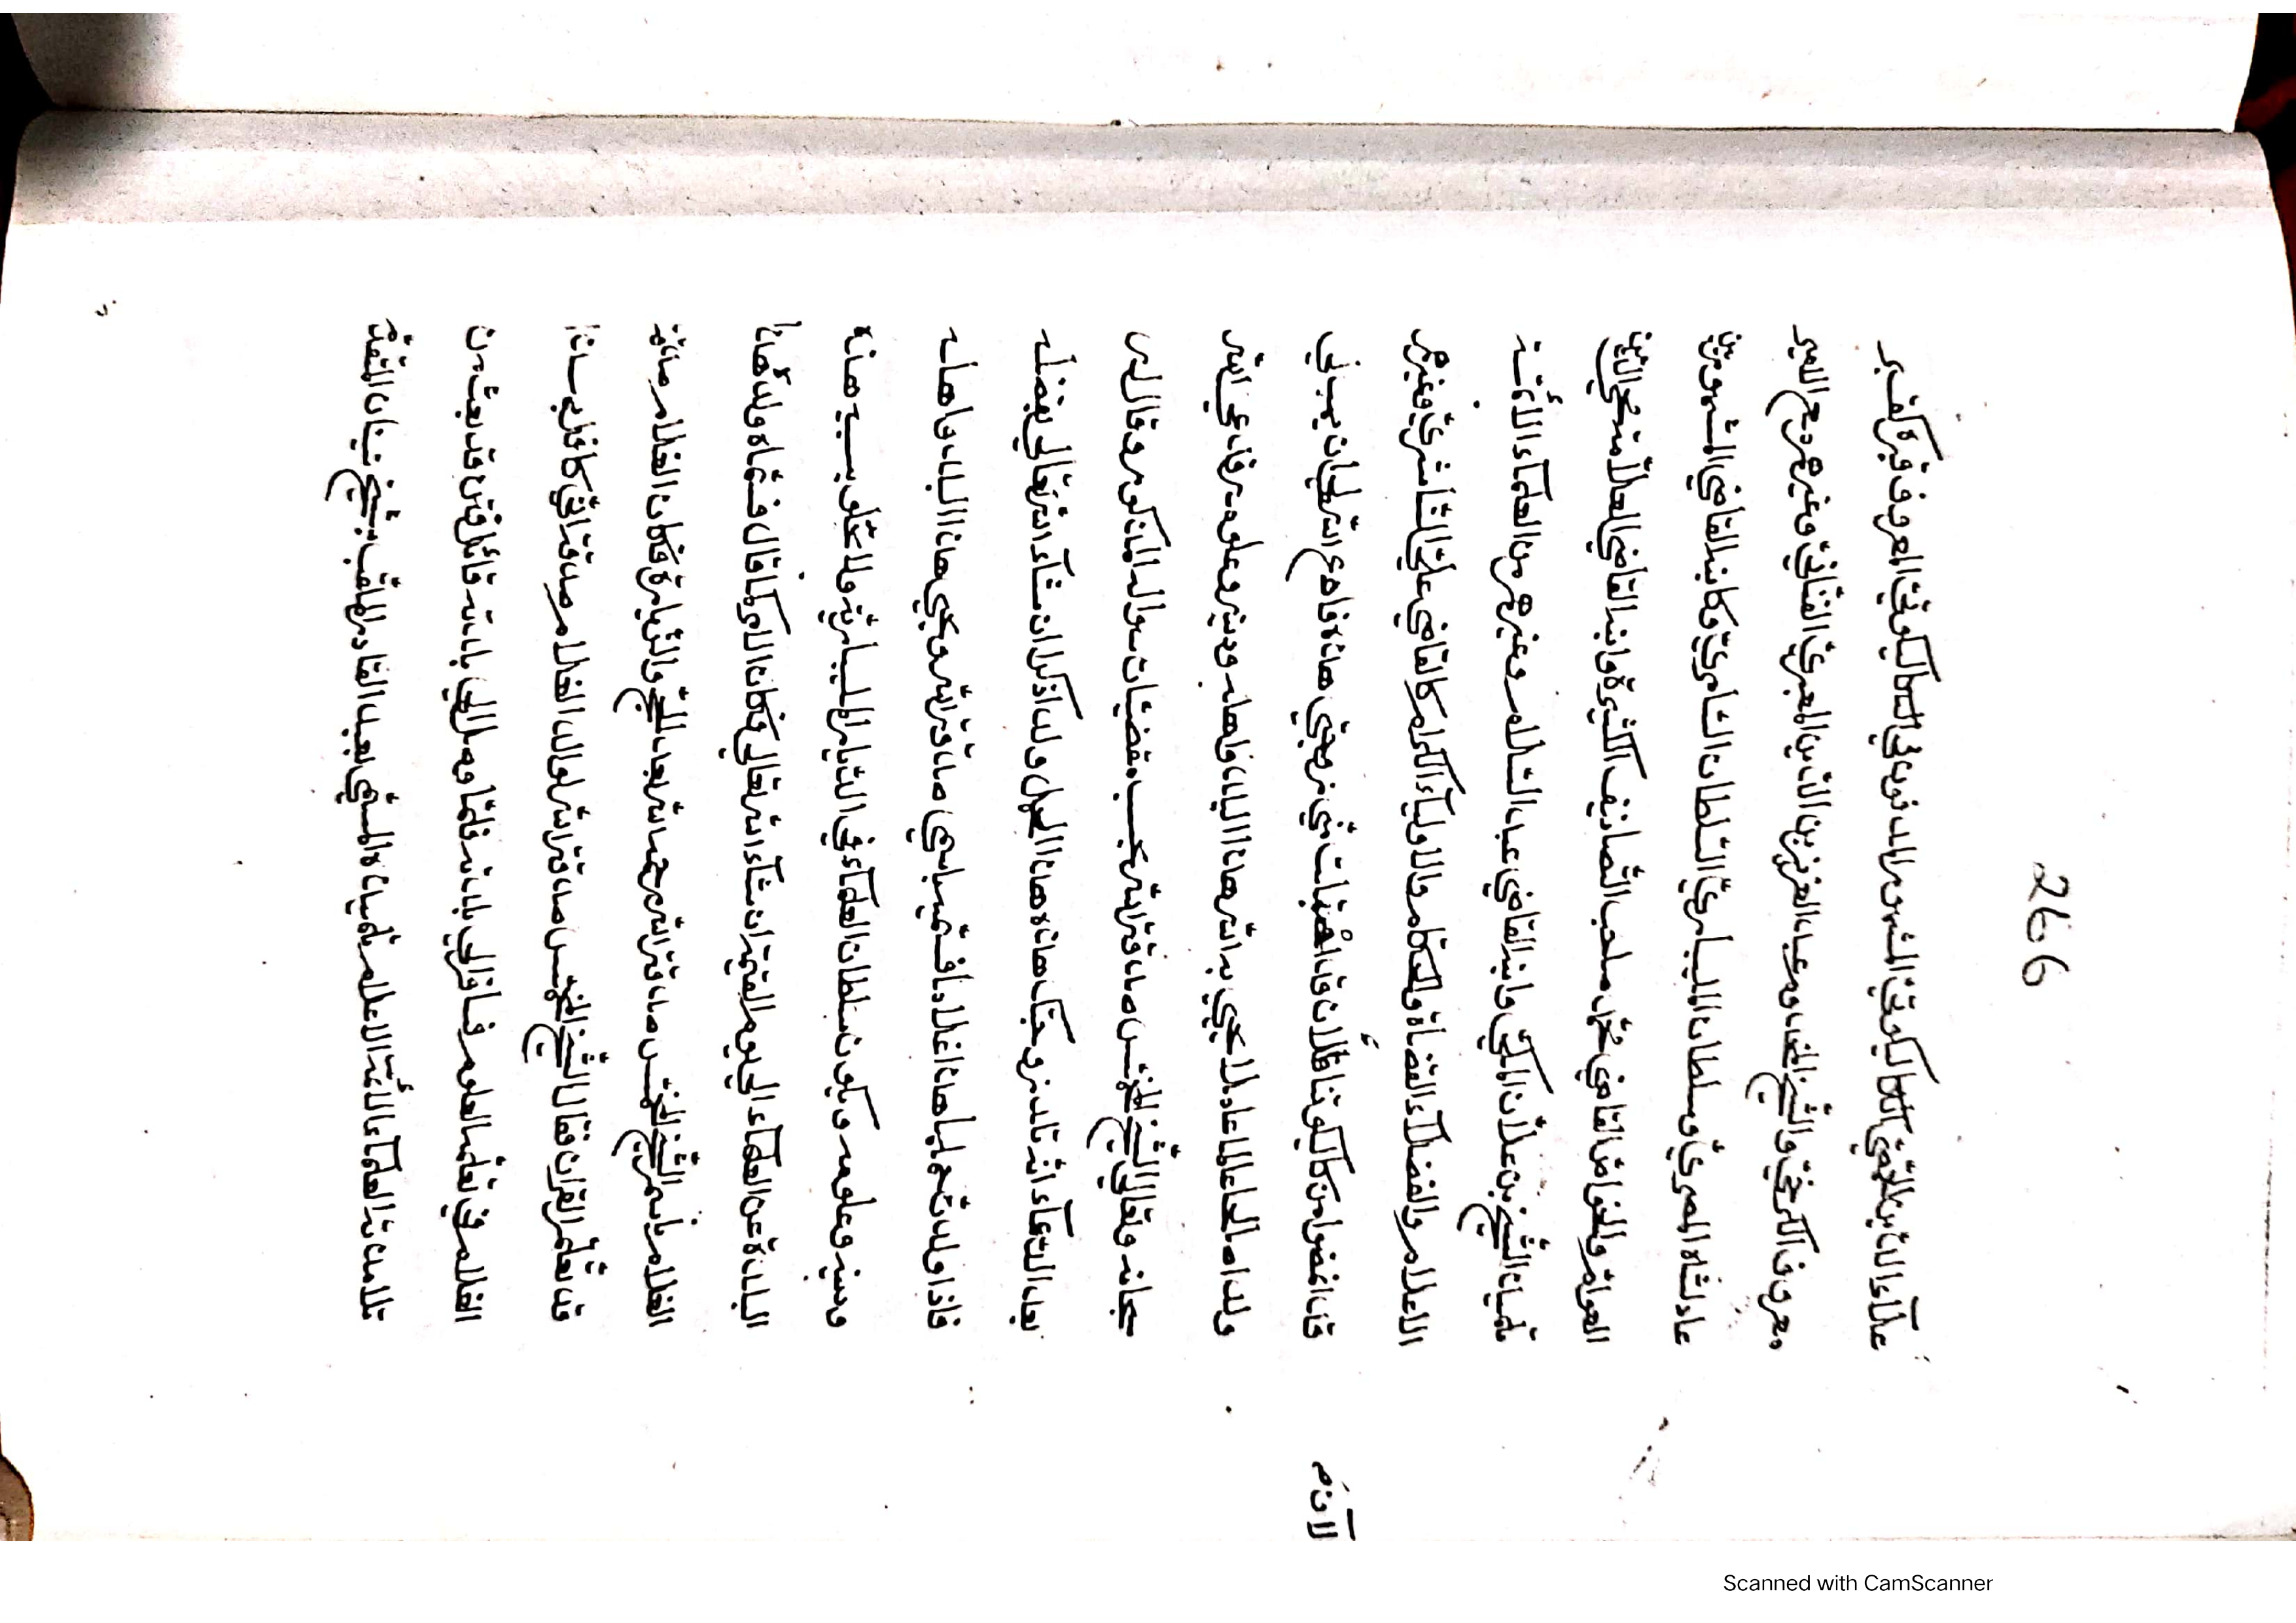 266
علآء الدّين الحمصيّ الكاليكوتيّ المشهور بالمدفون في الكاليكوتيّ المعروف قبره كقبر
معروف الكرخيّ والشّيخ المخدوم عبد العزيز بن الدّين المعبريّ الفنّانيّ وغيرهم مع المير
عادلشاه المصريّ وسلطان المليباريّ السّلطان الشّامريّ وكابنه القاضي المشهورين
العوامّ والخواصّ القاضي محمّد صاحب التّصانيف الكثيرة وابنه القاضي العلّامة محي الدّين
تلميذ الشّيخ بن علّان المكّيّ وابنه القاضي عبد السّلام وغيرهم من العلمآء الأئمّة
الاعلام والفضلآء القضاة والحكّام والاوليآء الكرام كالقاضي عليّ النّاشريّ وغيرهم
قد انضوا من كاليكوتنا فالآن قد اهتبلت منّي زوجتي هذه فادع اللّه لي ان يهب لي
لازم
ولدا صالحا عالما عادلا يحيي به اللّه هذا البلد واهله ودينه وعلومه فدعي اللّه
سبحانه وتعالى الشّيخ الحمص صدقة اللّه بحسب مقضيات سؤاله المذكور وقال له
بعد الدّعآء انّه تلد زوجتك هذه هذا الحمل ولدا ذكرا ان شآء اللّه تعالى بفضله
فاذا ولدت حملها هذا غلاما فسمّيه باسمي صدقة اللّه ويحيي هذا البلد واهله
ودينه وعلومه ويكون سلطان العلمآء في الدّيار المليباريّة ولا تخلو بسببه هذه
البلدة عن العلمآء الى يوم القيمة ان شآء اللّه تعالى فكان الامر كما قال فسمّاه ولدها
الغلام باسم الشّيخ الحمص صدقة اللّه رحمه اللّه بعد الحجّ والزّيارة فكان الغلام صدقة
قد تعلّم القران فقال الشّيخ الحمص صدقة اللّه لوالد الغلام صدقة اللّه كافلي بسنذا
الغلام في تعلّمه العلوم فسافر الى بلدته فلمّا وصل الى بلدته قائلا قد بعثت
تلامذته العلمآء الأئمّة الاعلام تلميذه المسمّى بعبد القادر الملقّب بشيخ شيبان المقدّم